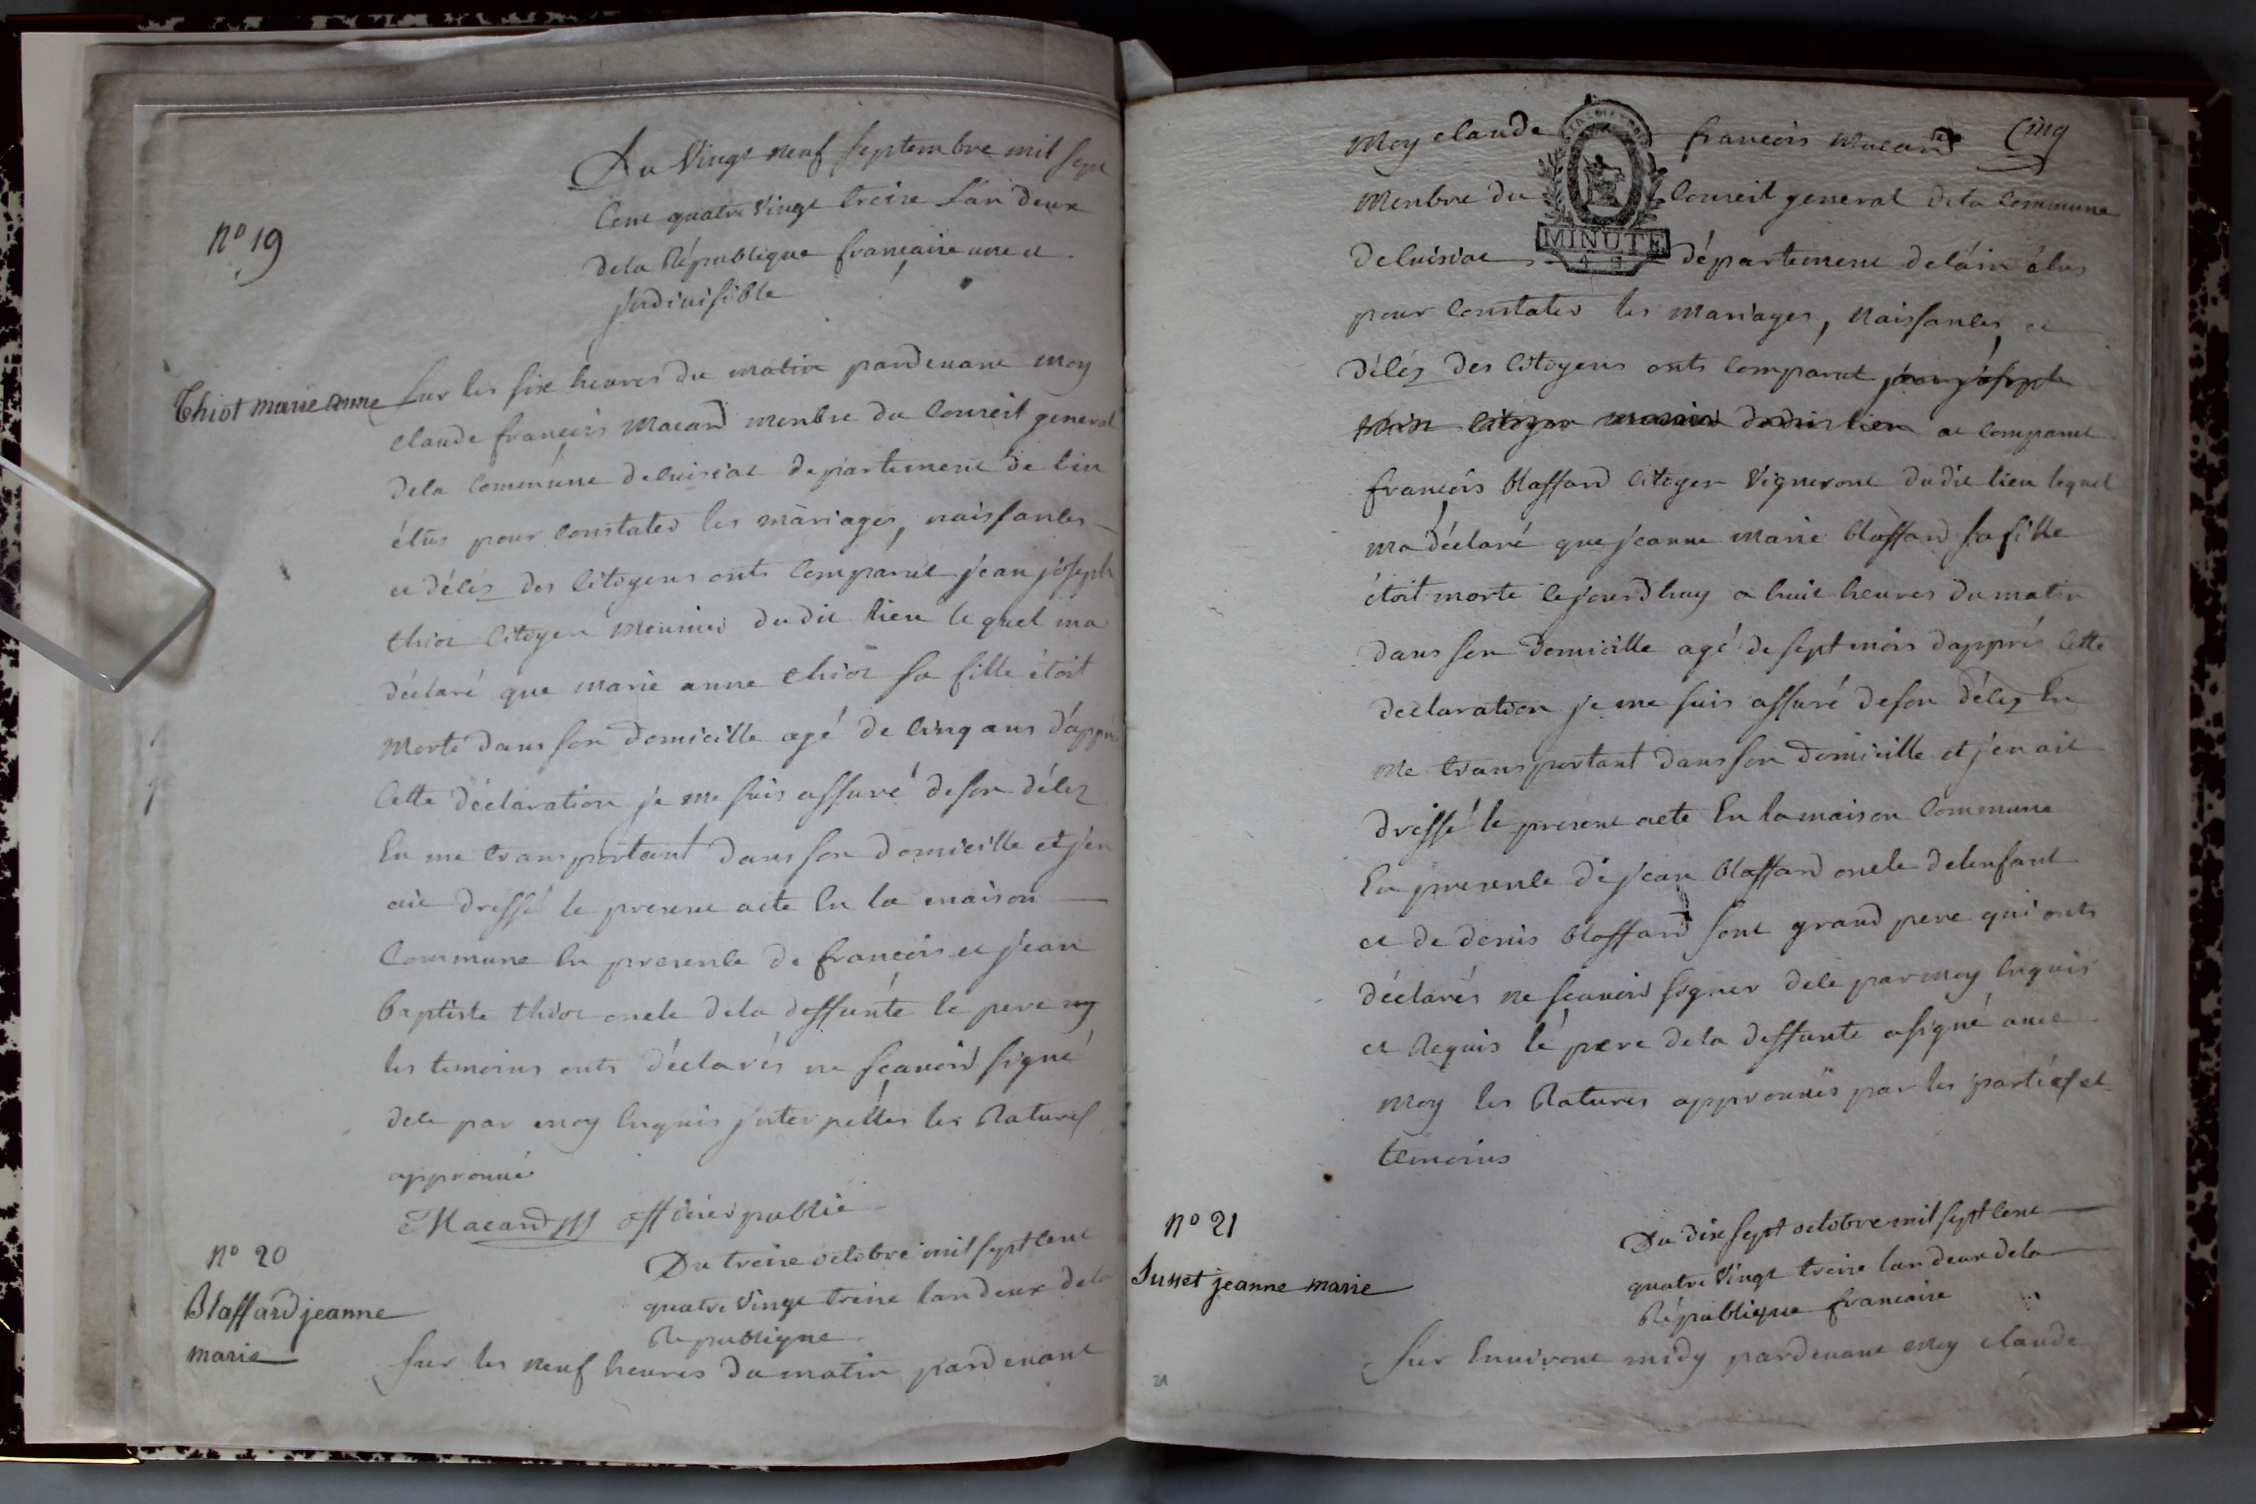 Du Vingt neuf septembre mil sept
Cent quatre Vingt treise L'an deux
dela République francaise une et
jndiuisible
N° 19
Thiot marie anne
sur les six heures du matin pardeuant moy
claude francois Macard menbre du Conseil general
dela Commune deluisiat departement de lin
élus pour Constater les màriages, naissances
et délés des Citoyens onts Comparut jean joseph
thiot Citoyen Meunier du dit lieu le quel ma
déclaré que marie anne thiot sa fille étoit
Morte dans son domicille agé de Cinq ans d'apprè
Cette déclaration je me suis assuré deson déléz
En me transportant dans son domicille et j'en
ait dressé le present acte En la maison
Commune En presence de francois et jean
baptiste thiot oncle dela deffunte le pere ny
les temoins onts déclarés ne sçauoir signé
dele par moy Enquis jnterpelles les Ratures
approuué
CMacard offisier public
N° 20
Blaffard jeanne
marie
Du treise octobre mil sept Cent
quatre Vingt treise lan deux dela
Republique
sur les neuf heures du matin pardeuant
Moy claude francois Macard Cinq
Menbre du Conseil general dela Commune
MINUTE
deluisiat département deláin élus
pour Constater les Mariages, Naissances et
délés des Citoyens onts Comparut jean joseph
thiot Citoyen meunier dudit lieu at Comparut
francois blaffard Citoyen Vigneront dudit lieu lequel
ma déclaré que jeanne Marie blaffard sa fille
étoit morte Cejourdhuy a huit heures du matin
dans son domicille agé de sept mois dapprés Cette
declaration je me suis assuré deson délez En
me transportant dans son domicille et j'en ait
dressé le present acte En la maison Commune
En presence de jean blaffard oncle delenfant
et de denis blaffard sont grand pere qui onts
déclarés ne sçauoir signer dele par moy Enquis
et Requis lé pere dela deffunte asigné auec
Moy les Ratures approuués par les partiés et
temoins
N° 21
Susset jeanne marie
Du dix sept octobre mil sept Cent
quatre Vingt treise lan deux dela
République francaise
sur Enuiront midy pardeuant moy claude
21